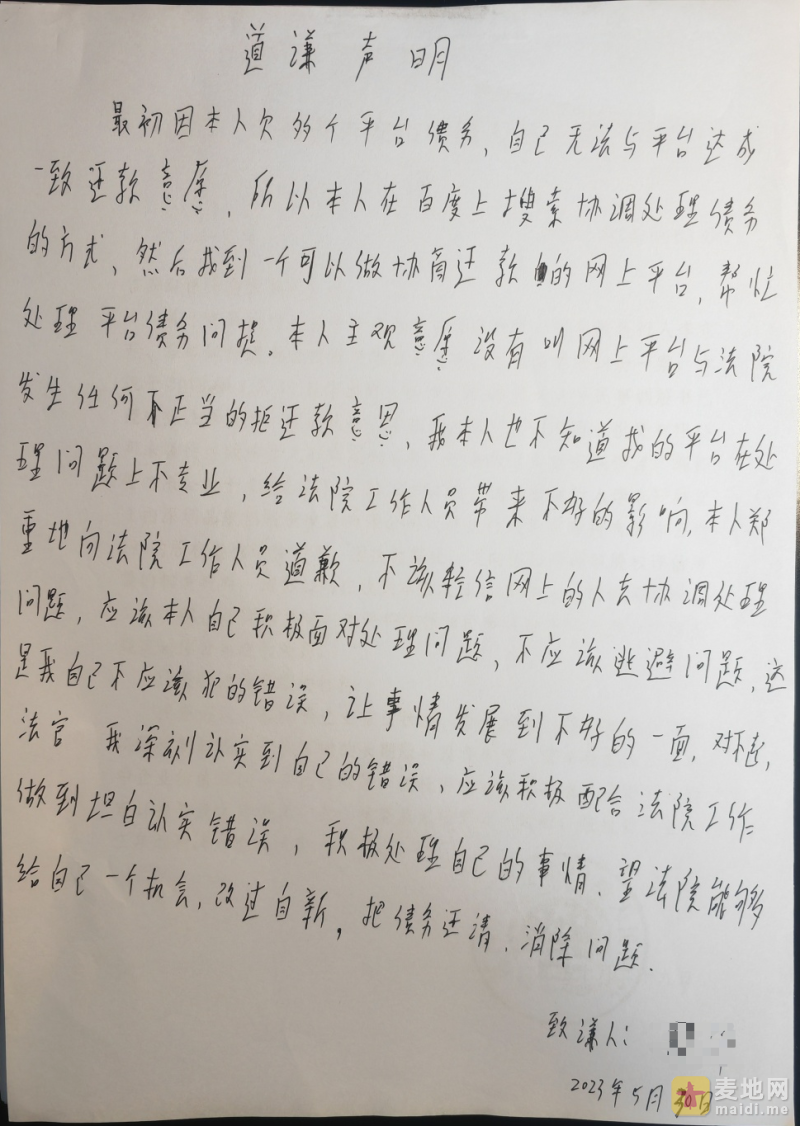 道谦声明
最初因本人欠多个平台债务、自己无法与平台达成
一致还款意愿，所以本人在百度上搜索协调处理债务
的方式、然后找到一个可以做协商还款的网上平台，帮忙
处理平台债务问提。本人主观意愿没有叫网上平台与法院
发生任何不正当的拒还款意思，我本人也不知道找的平台在处
理问题上不专业，给法院工作人员带来不好的影响，本人郑
重地向法院工作人员道歉，不该轻信网上的人去协调处理
问题，应该本人自己积极面对处理问题，不应该逃避问题，这
是我自己不应该犯的错误，让事情发展到不好的一面，对不起，
法官 我深刻认实到自己的错误、应该积极配合法院工作
做到坦白认实错误，积极处理自己的事情、望法院能够
给自己一个机会，改过自新，把债务还清、消除问题.
致谦人：
2023年5月30日
麦地网
maidi.me